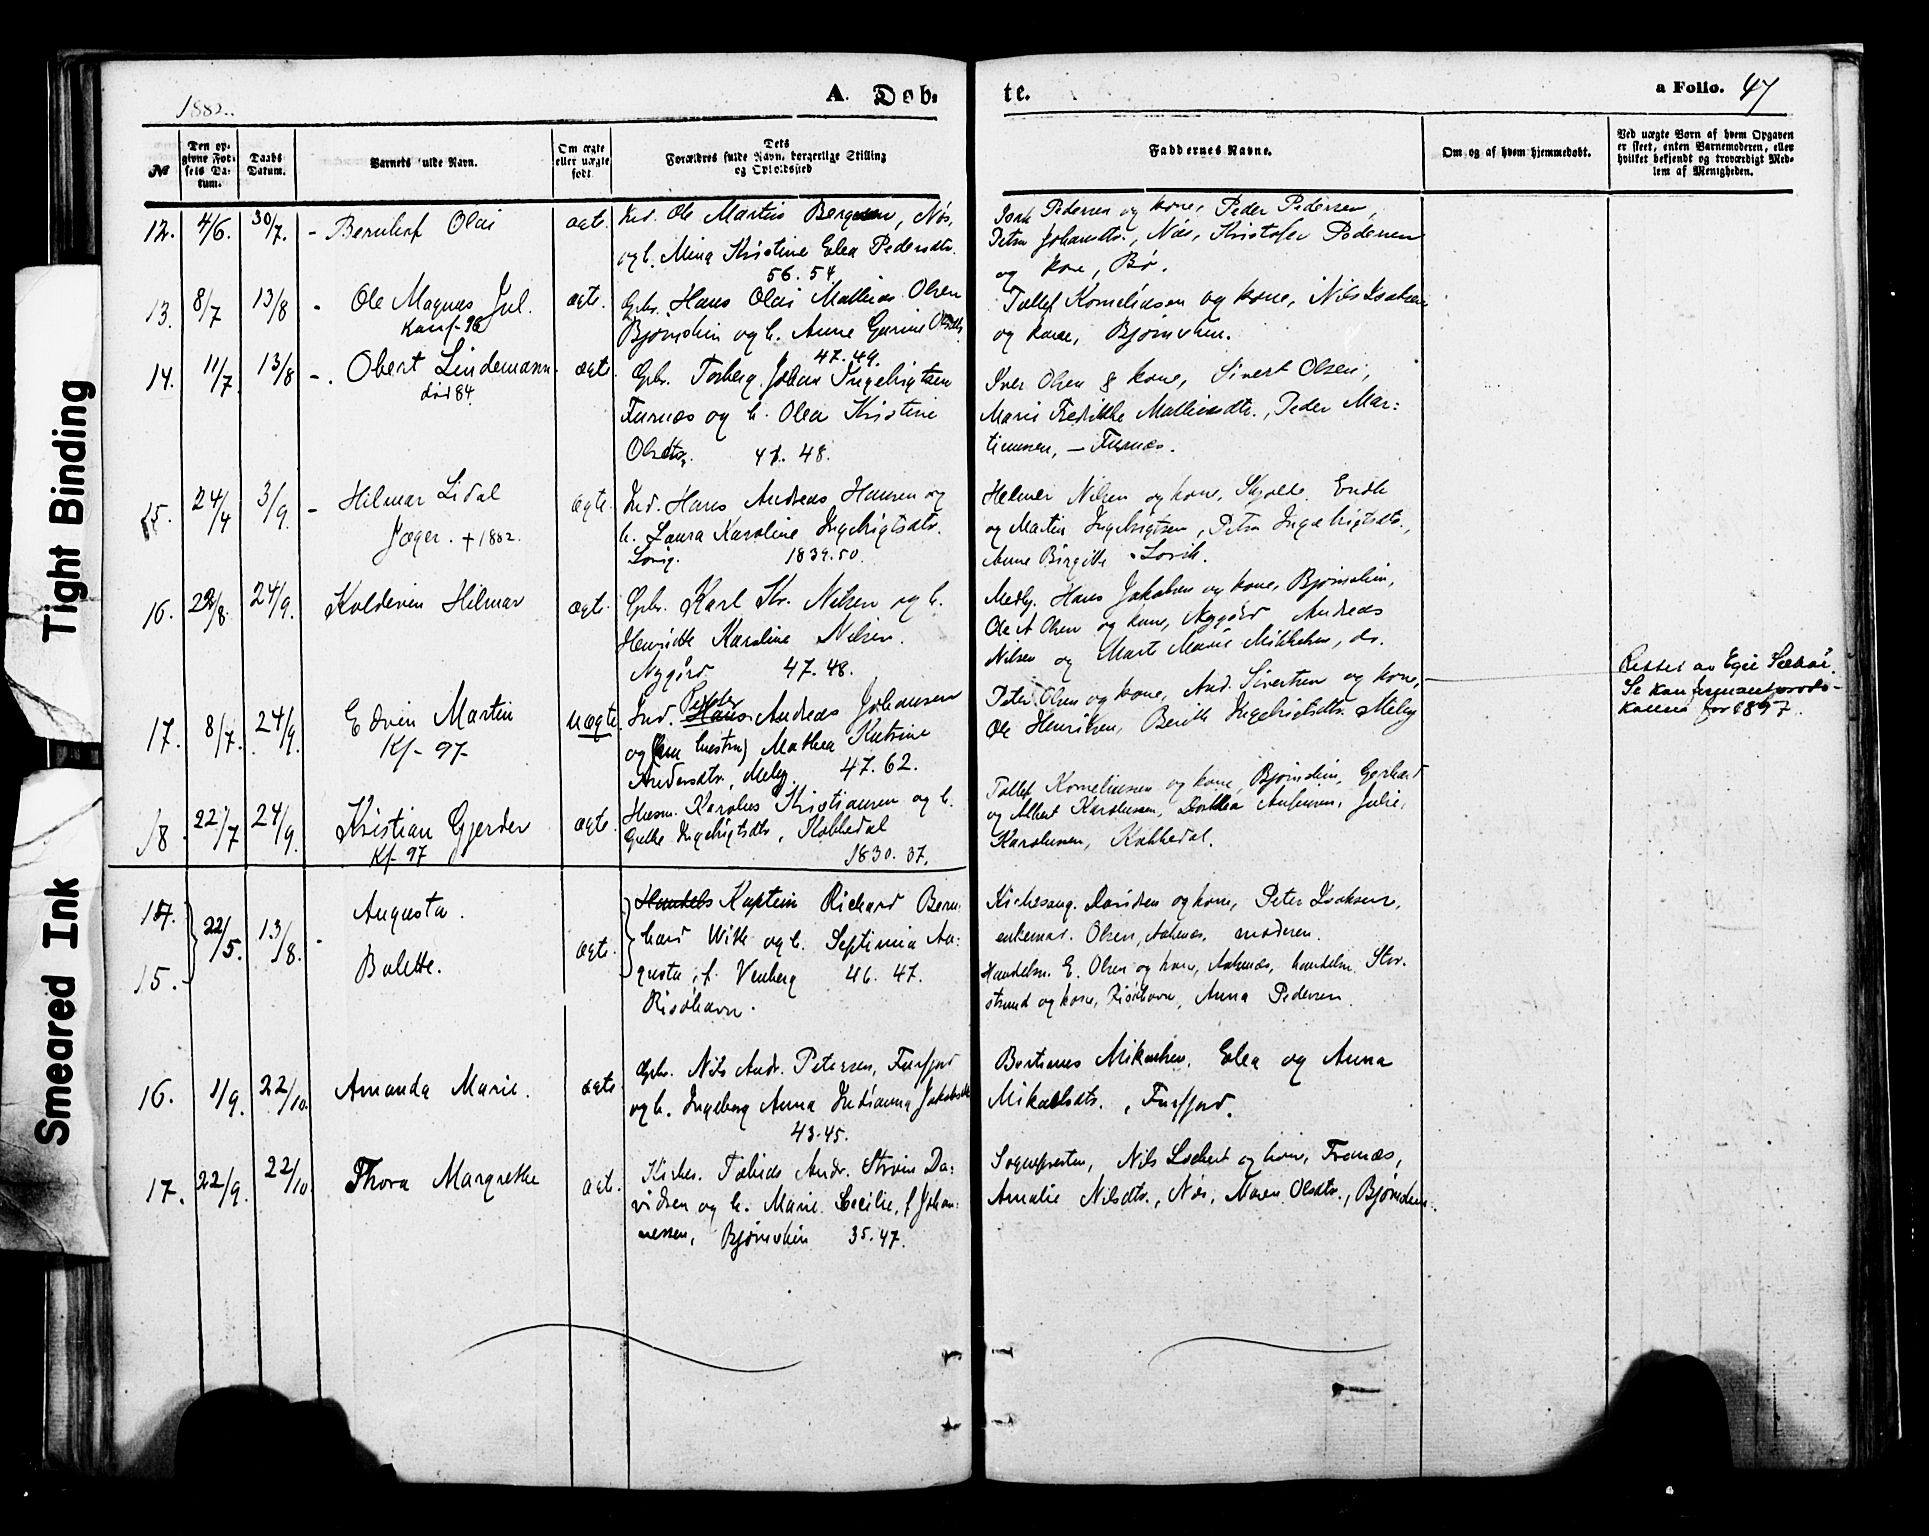 1882.
A. Døb-
te.
a Folio. 47
№
Den op-
givne Fød-
sels Da-
tum.
Daabs
Datum.
Barnets fulde Navn.
Om ægte
eller uægte
født.
Dets
Forældres fulde Navn, borgerlige Stilling
og Opholdssted
Faddernes Navne.
Om og af hvem hjemmedøbt.
Ved uægte Børn af hvem Opgaven
er skeet, enten Barnemoderen, eller
hvilket bekjendt og troværdigt Med-
lem af Menigheden.
12. 4/6. 30/7. - Bernhof Olai ægte. Ind. Ole Martin Bergersen, Nøs,
og h. Mina Kristine Elea Pedersdtr.
56. 54
Isak Pedersen og kone, Peder Pedersen,
Petra Johansdtr., Nøs, Kristofer Pedersen
og kone, Bø.
13. 8/7 13/8 - Ole Magnus Jul. ægte. Gbr. Hans Olai Mathias Olsen
Konf-96
Bjørnskin og h. Anne Gurine Olsdtr.
47. 49.
Tollef Korneliussen og kone, Nils Isaksen
og kone, Bjørnskin.
14. 11/7 13/8 - Obert Lindemann ægte Gbr. Torberg Johan Ingebrigtsen
død 84.
Furnæs og h. Olea Kristine
Olsdtr. 47. 48.
Iver Olsen & kone, Sivert Olsen,
Marie Fredrikke Mathisdtr., Peder Mar-
tinussen, - Furnæs.
15. 24/4 3/9. - Hilmar Lidal ægte. Ind. Hans Andreas Hansen og
Jæger. + 1882.
h. Laura Karoline Ingebrigtsdtr.
Lovig. 1839. 50.
Helmer Nilsen og kone, Skjolde, Endte
og Martin Ingebrigtsen, Petra Ingebrigtsdtr.,
Anne Birgitte Lovik.
16. 22/8. 24/9. Koldevin Hilmar ægte. Gbr. Karl Kr. Nilsen og h.
Henriette Karoline Nilsen.
Nygård 47. 48.
Medhj. Hans Jakobsen og kone, Bjørnskin,
Ole A Olsen og kone, Nygård Andreas
Nilsen og Marte Marie Mikkelsen, ds.
17. 8/7. 24/9. Edvin Martin uægte Ind. Peder Hans Andreas Johansen
Kf- 97-
og (hans hustru) Mathea Katrine
Andersdtr., Meby. 47. 62.
Peter Olsen og kone, And. Sivertsen og kone,
Ole Henriksen, Berith Ingebrigtsdtr. Meby
Se konfirmantproto-
kollen for 1897.
18. 22/7 24/9. Kristian Gjerder ægte. Husm. Karolus Kristiansen og h.
Kf- 97
Gjelle Ingebrigtsdtr, Kobbedal
1830. 37.
Tollef Korneliussen og kone, Bjørnskin, Gerhard
og Albert Karolussen, Dorthea Antonsen, Julie
Karolussen, Kobbedal.
14. } 22/5. 13/8. - Augusta. ægte. Handels Kaptein Richard Bern-
15. Bolette.
hard With og h. Septimia Au-
gusta, f. Venberg 46. 47.
Risøhavn.
Kirkesang. Davidsen og kone, Peter Isaksen,
enkemad. Olsen, Aaknæs, moderen.
Handelsm. E. Olsen og kone, Aaknæs, handelsm. Stor-
strand og kone, Risøhavn, Anna Pedersen.
16. 1/9. 22/10. Amanda Marie. ægte Gbr. Nils Andr. Petersen, Furfjord
og h. Ingeborg Anna Indianna Jakobsdtr
43-45.
Bertinus Mikalsen, Elea og Anna
Mikalsdtr., Furfjord.
17. 22/9. 22/10. Thora Margrethe ægte. Kirkes. Tobias Andr. Strøm Da-
vidsen og h. Marie Cecilie, f Johan-
nessen, Bjørnskin 35. 47.
Sognepresten, Nils Lochert og kone, Framnæs,
Amalie Nilsdtr., Nøs, Maren Olsdtr., Bjørnskin.
Tight Binding
Smeared Ink